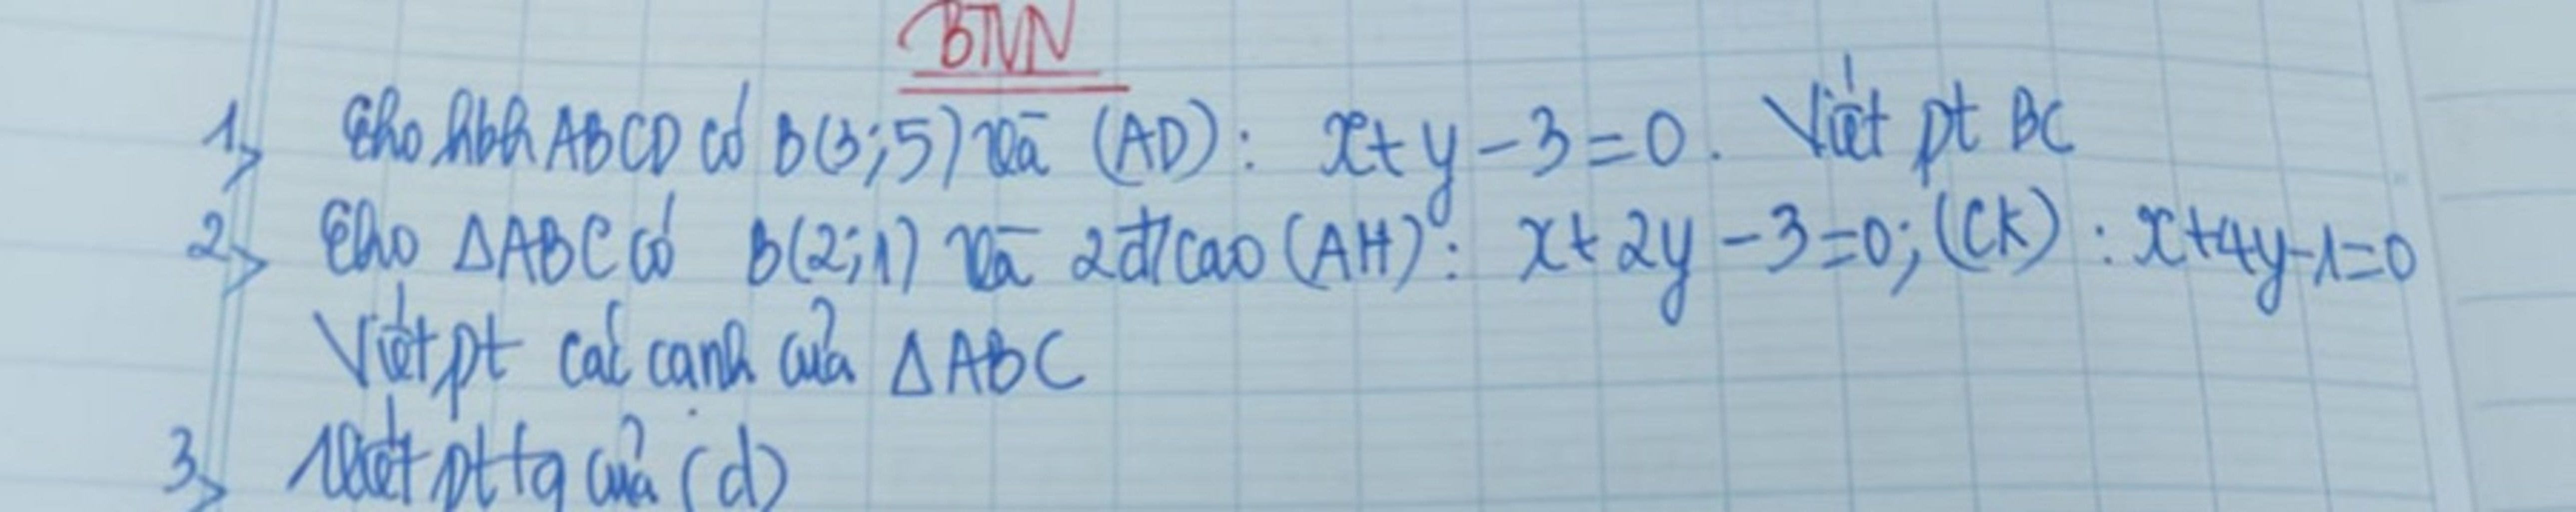 BTVN
1, Cho hbh ABCD có B(3;5) và (AD): x+y-3=0. Viết pt BC
2, Cho ΔABC có B(2;1) và 2đ/cao (AH): x+2y-3=0; (CK): x+4y-1=0
Viết pt các cạnh của ΔABC
3, Viết pttq của (d)